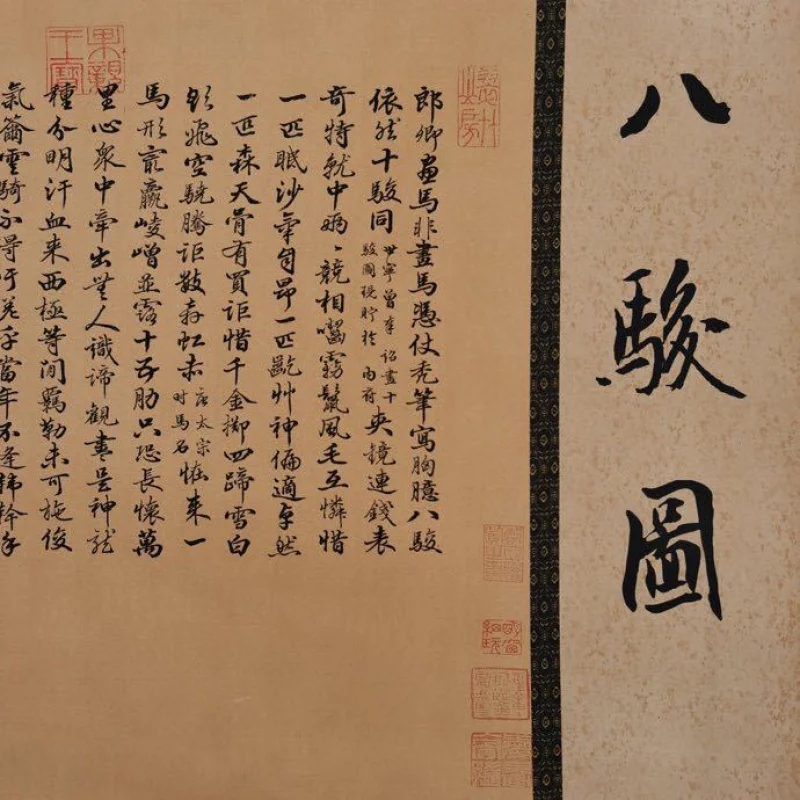 八駿圖
郎卿畫馬非畫馬憑仗禿筆寫胸臆八駿
依然十駿同
世寧曾奉詔畫十
駿圖現貯於內府
夾鏡連錢表
奇特就中競相嚙霧鬣風毛互憐惜
一匹眠沙氣自昂一匹齕艸神偏適卓然
一匹森天骨有買詎惜千金擲四蹄雪白
飛空驍騰詎數奔虹赤
唐太宗
時馬名
恠來一
馬形最羸崚嶒並露十五肋只恐長懷萬
里心衆中牽出無人識諦觀盡是神龍
種分明汗血來西極等閒羈勒未可施俊
氣籋雲騎不得吁嗟乎當年不逢韓幹手
果親王寶